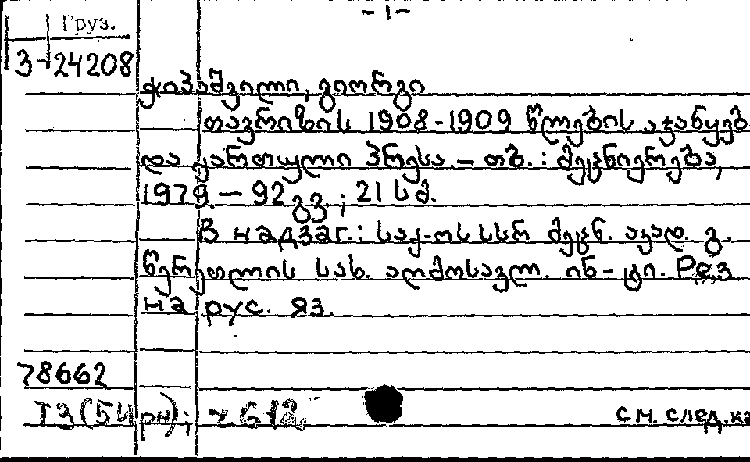 - 1 -
Груз.
3-24208
ჭიპაშვილი, გიორგი
თავრიზის 1908-1909 წლების აჯანყებ
და ქართული პრესა. - თბ. : მეცნიერება,
1979. - 92 გვ. ; 21 სმ.
В надзаг. : საქ. სსრ მეცნ. აკად. გ.
წერეთლის სახ. აღმოსავლ. ინ-ტი. Рез
на рус. яз.
78662
Т3(5Ирн);
см. след. ка